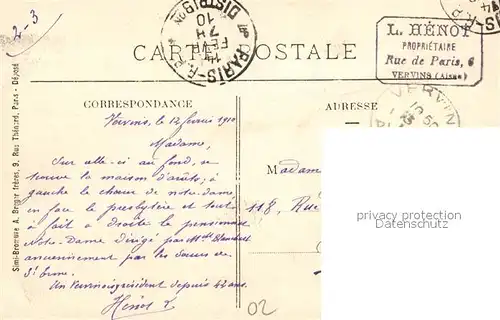 2-3
PARIS-R.P.
DISTRIBON
7H
14
FEVR
10
L. HÉNOT
PROPRIÉTAIRE
Rue de Paris, 6
VERVINS (Aisne)
CARTE POSTALE
VERVINS
CORRESPONDANCE
ADRESSE
Vervins, le 12 février 1910
Madame,
Sur celle-ci au fond, se
trouve la maison d'
gauche le chœur de notre-dame
en face le presbytère et tout
à fait à droite le pensionnat
Notre-Dame dirigé par Melle
anciennement par les sœurs de
St
un Vervinois résident depuis 42 ans.
Hénot
Madam
118, Rue
Simi-Bromure A. Breger frères, 9, Rue Thénard, Paris - Déposé
privacy protection
Datenschutz
02